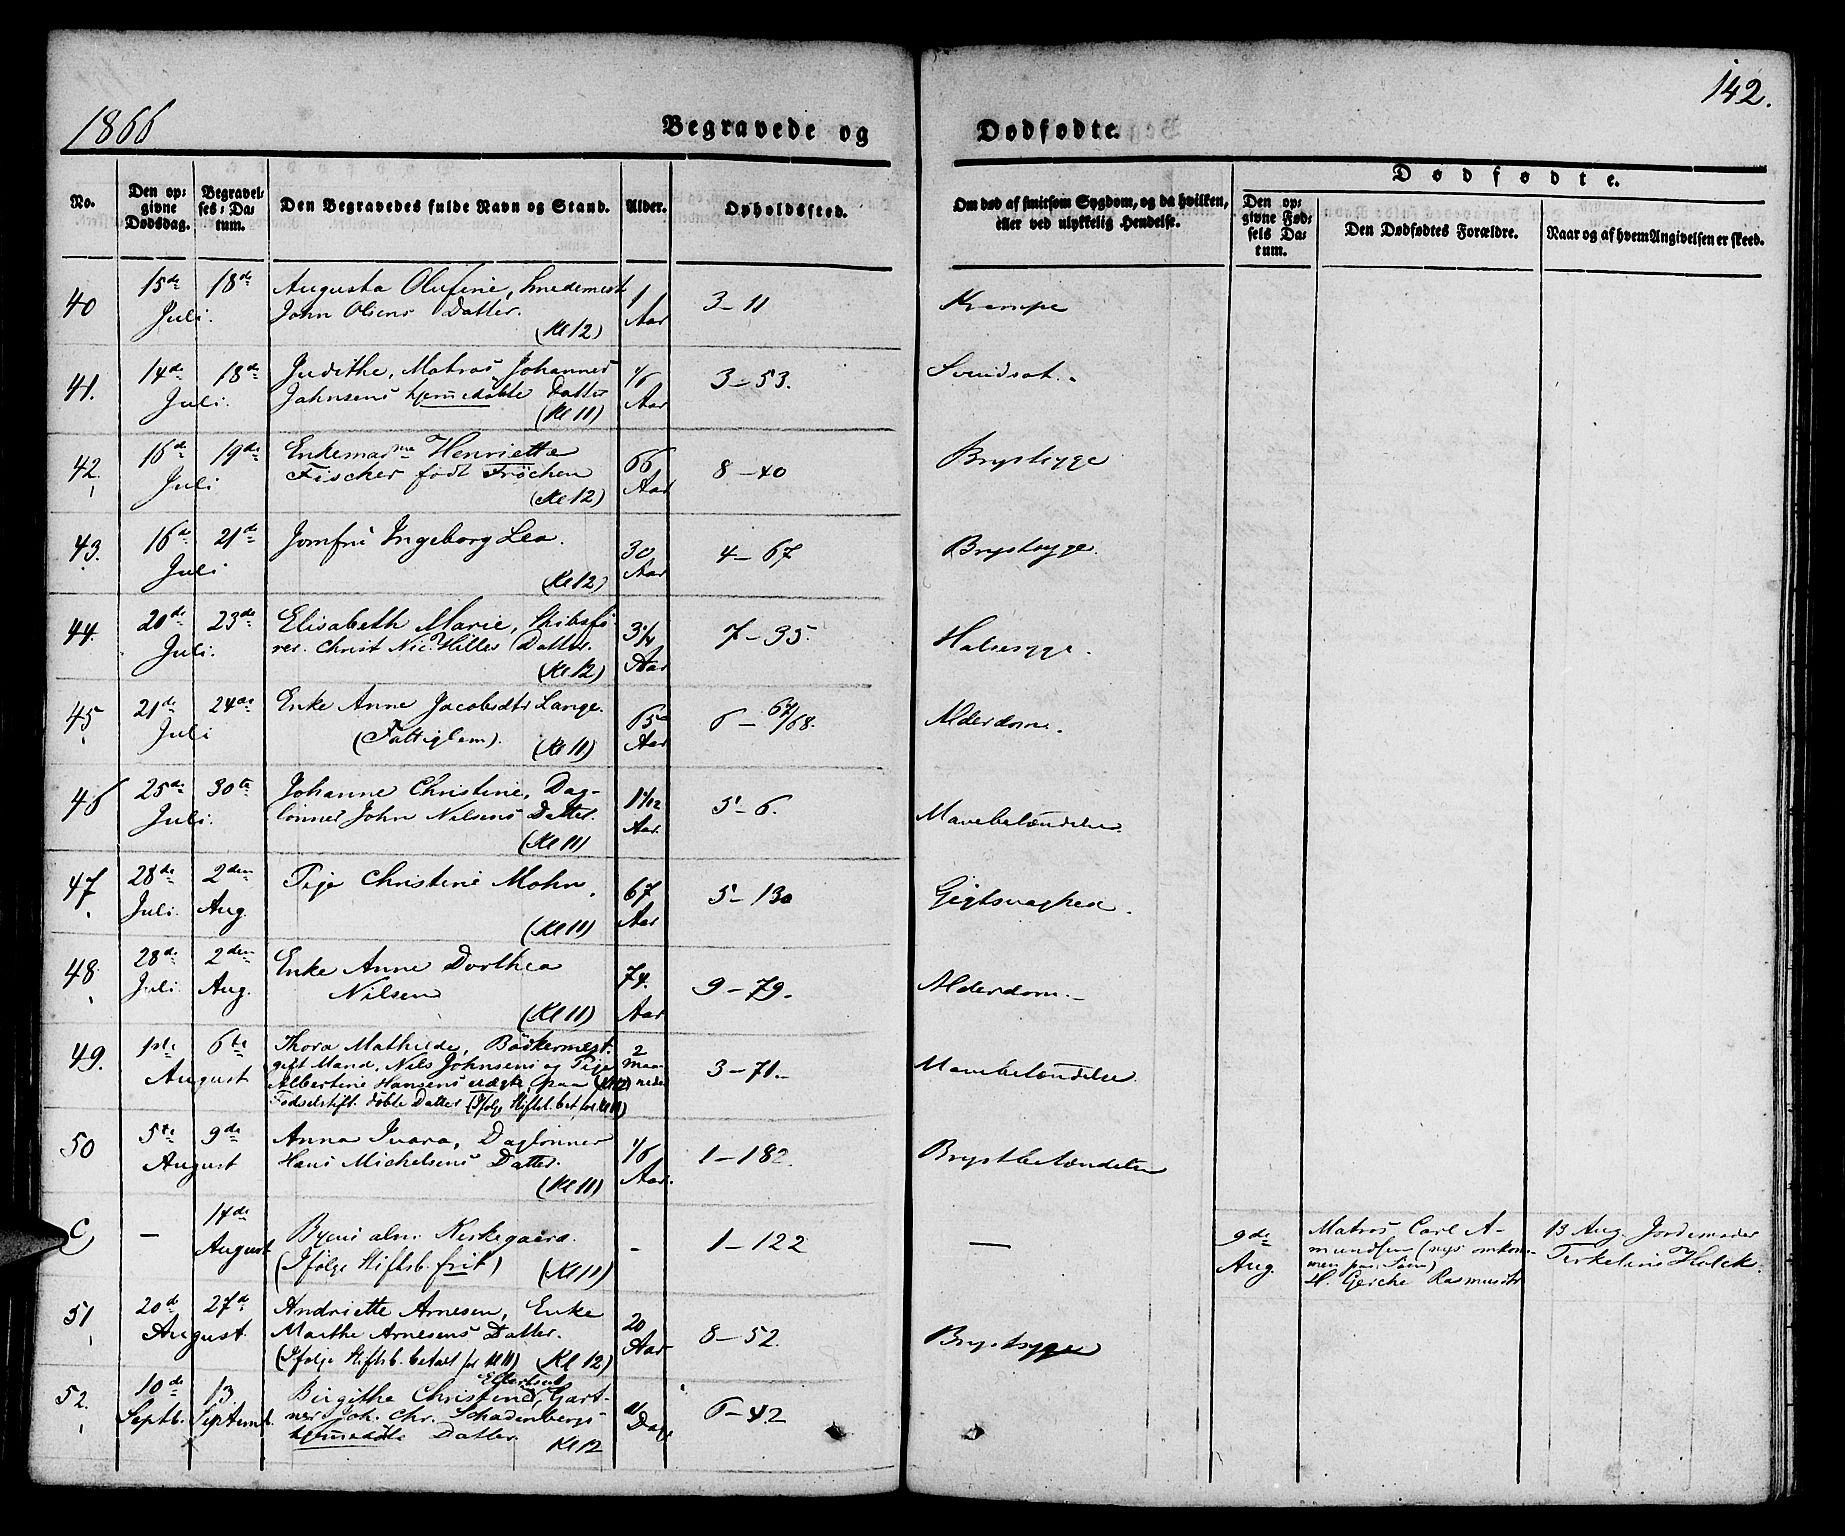 142.
1866
Begravede og Dødfødte.
No.
Den opgivne Dødsdag.
Begravelses-Datum.
Den Begravedes fulde Navn og Stand.
Alder.
Opholdssted.
Om død af smitsom Sygdom, og da hvilken, eller ved ulykkelig Hendelse.
Dødfødte.
Den opgivne Fødsels Datum.
Den Dødfødtes Forældre.
Naar og af hvem Angivelsen er skeed.
40 15de 18de Augusta Olufine, Smedemest 1 3-11 Krampe
Juli. John Olsens Datter. Aar
(Kl 12)
41. 14de 18de Judithe, Matros Johannes 1/6 3-53.
Juli. Jahnsens hjemmedøbte Datter Aar
(Kl 11)
42. 16de 19de Enkemadme Henriette 66 8-40 Brystsyge
Juli Fischer født Frøchen Aar
(Kl 12)
43. 16de 21de Jomfru Ingeborg Lea. 30 4-67 Brystsyge.
Juli Aar
(Kl 12)
44. 20de 23de Elisabeth Marie, Skibsfø 3 1/4 7-35. Halssyge.
Juli. rer. Christ Nic. Hilles Datter. Aar
(Kl 12)
45 21de 24de Enke Anne Jacobsdtr Lange. 65 6-67/68. Alderdom.
Juli (Fattiglem). Aar
(Kl 11)
46 25de 30te Johanne Christine, Dag- 1 1/12 5-6. Mavebetændelse.
Juli. lønner John Nilsens Datter. Aar.
(Kl 11)
47 28de 2den Pige Christine Mohn. 67 5-130 Gigtsvaghed.
Juli. Aug. Aar
(Kl 11)
48 28de 2den Enke Anne Dorthea 74. 9-79. Alderdom.
Juli. Aug. Nilsen Aar
(Kl 11)
49. 1ste 6te Thora Mathilde, Bødkermest. 2 3-71. Mavebetændelse.
August gift Mand, Nils Johnsens og Pige Maa-
Albertine Hansens uægte, (paa Kl 12) neder
Fødselsstift. døbte Datter (Ifølge Stiftsb. bet. for Kl 11)
50 5te 9de Anna Ivara, Daglønner 1/6 1-182. Brystbetændelse
August Hans Michelsens Datter. Aar.
(Kl 11)
C) — 14de Byens alm. Kirkegaard. - 1-122 — 9de Matros Carl A- 13 Aug. Jordemoder
August (Ifølge Stiftsb. frit) (Kl 11) Aug. mundsen (nys omkom- Terkeline Holck.
men paa Søen)
H. Gerche Rasmusdtr
51 20de 27de Andriette Arnesen, Enke 20 8-52. Brystsyge
August Marthe Arnesens Datter. Aar
(Ifølge Stiftsb. betalt for Kl 11) (Kl 12)
52. 10de 13. Birgithe Christine, Gart- 11 6-42
Septb. Septemb. ner Joh. Chr. Schadenbergs Dage
hjemmedøbte Datter.
Kl 12